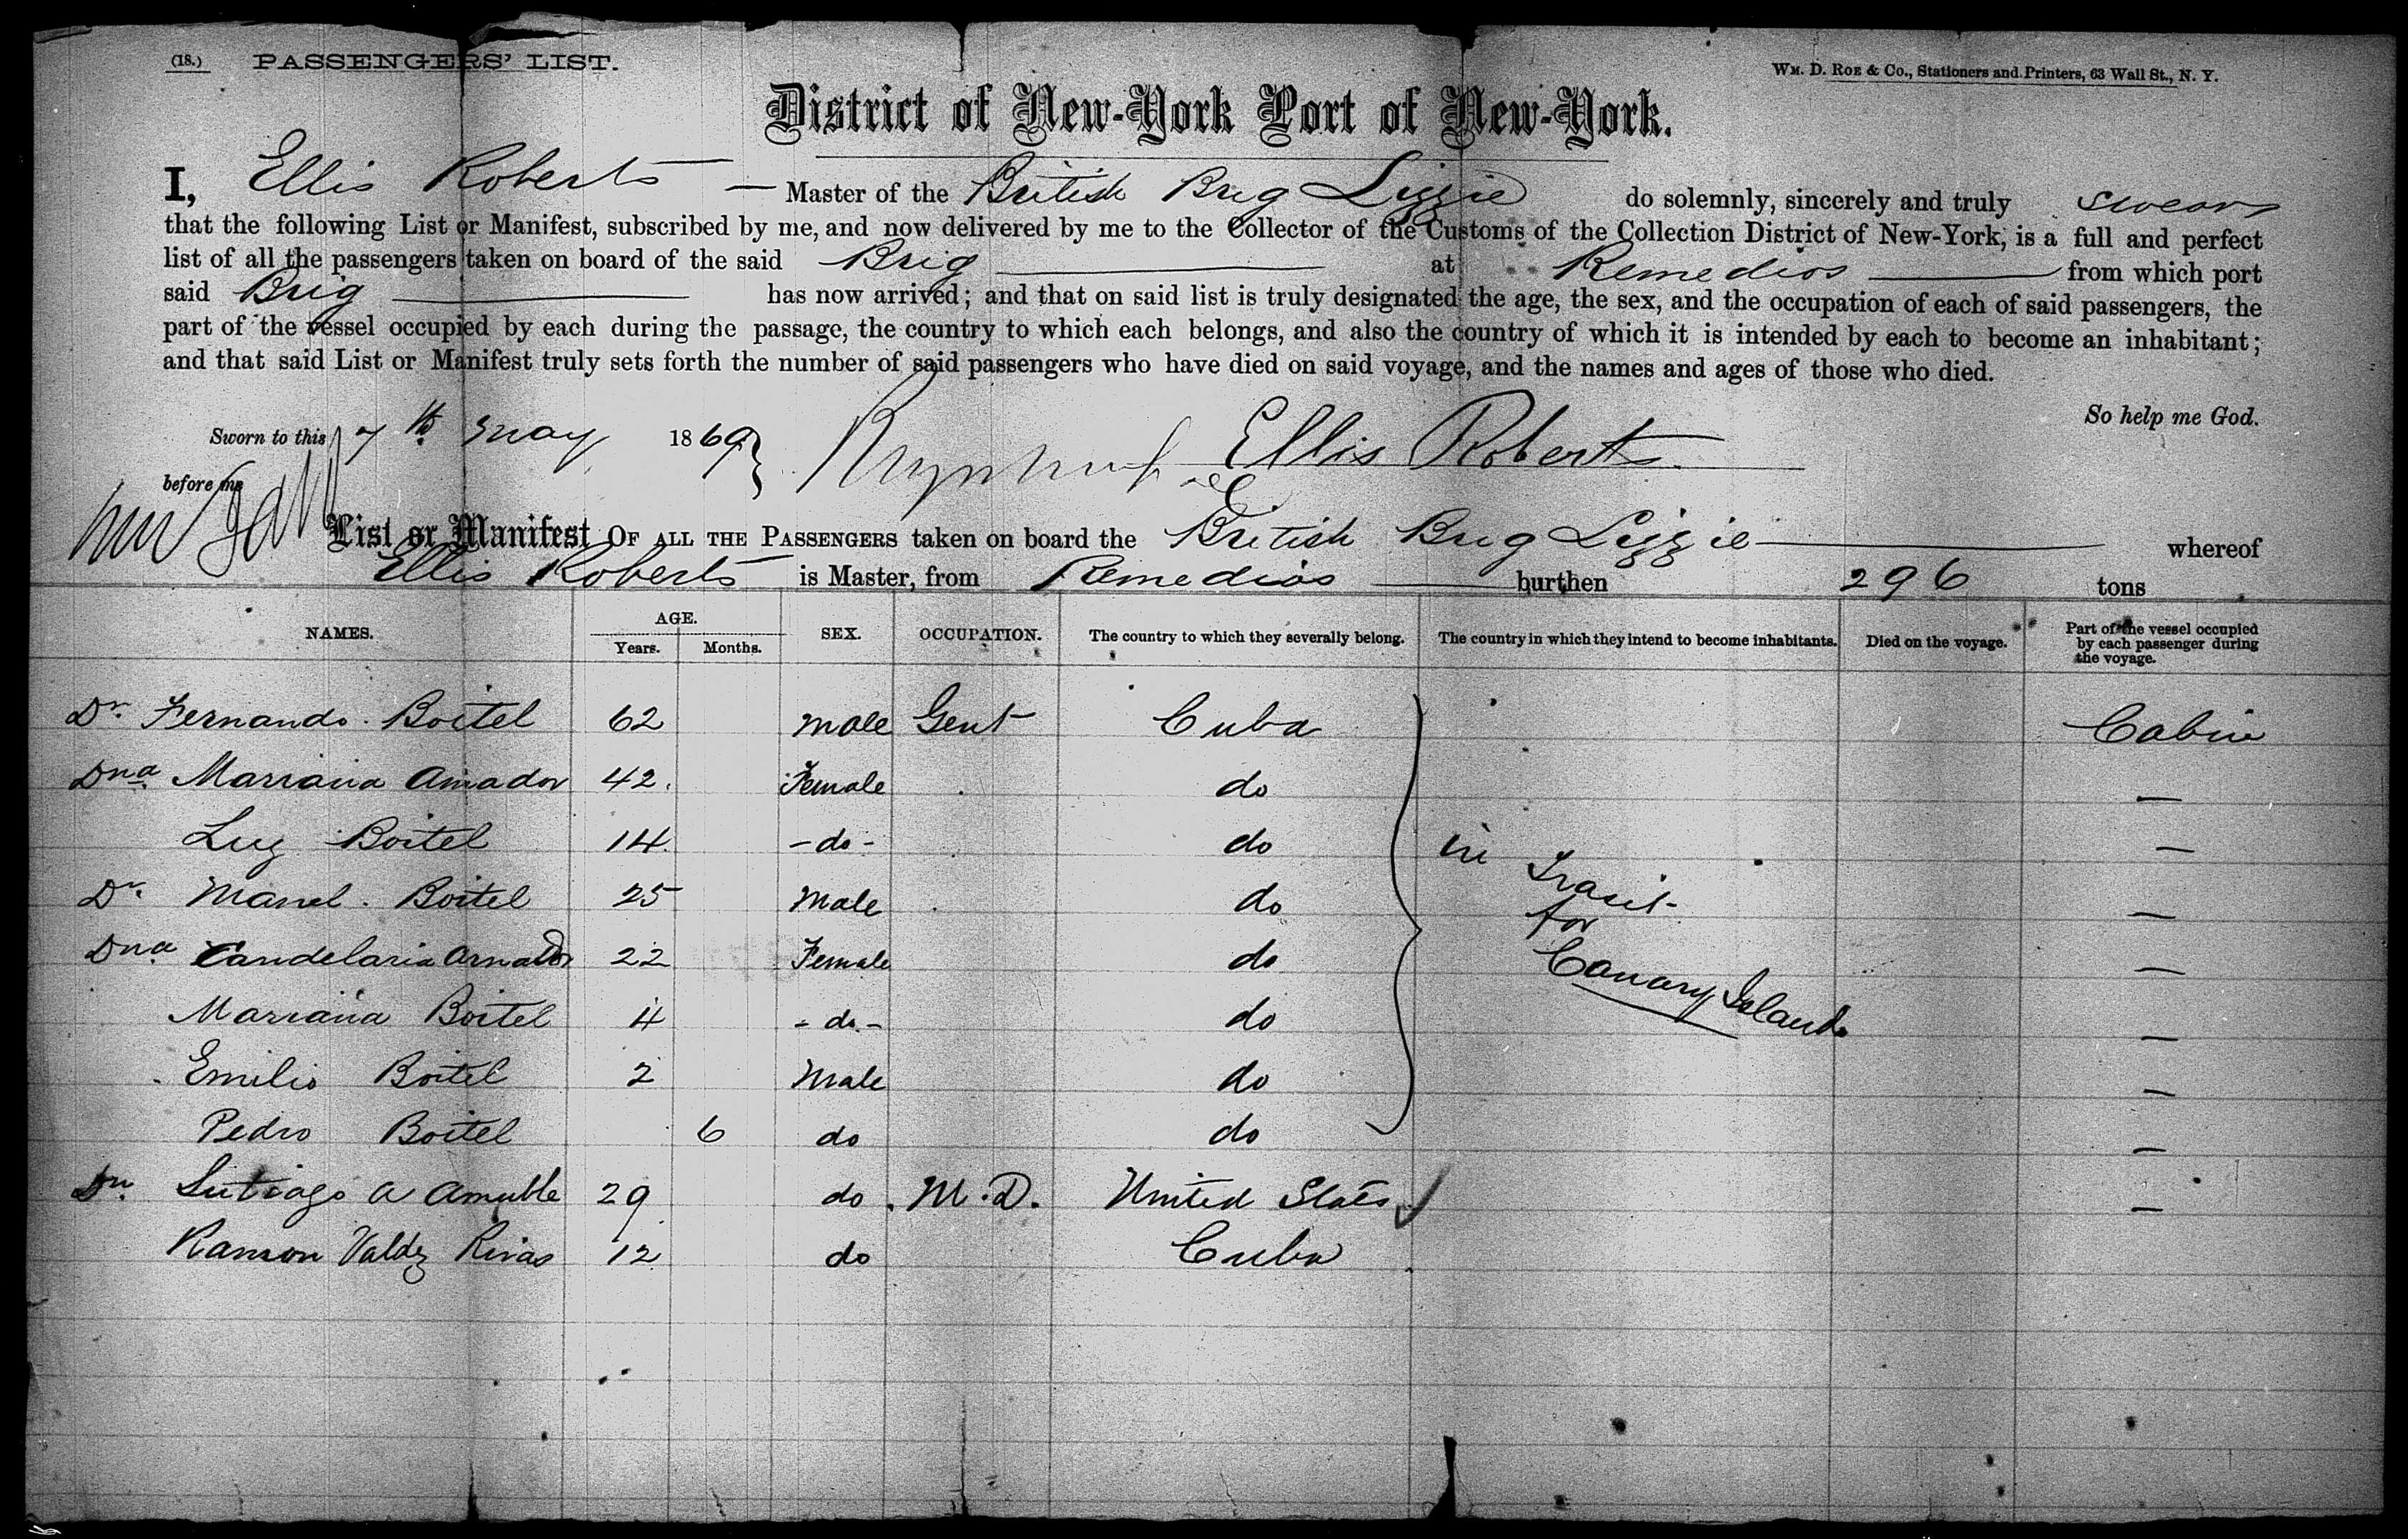 (18.) PASSENGERS' LIST.
Wm. D. Roe & Co., Stationers and Printers, 63 Wall St., N. Y.
District of New-York Port of New-York.
I, Ellis Roberts — Master of the British Brig Lizzie do solemnly, sincerely and truly swear
that the following List or Manifest, subscribed by me, and now delivered by me to the Collector of the Customs of the Collection District of New-York, is a full and perfect
list of all the passengers taken on board of the said Brig at Remedios from which port
said Brig has now arrived; and that on said list is truly designated the age, the sex, and the occupation of each of said passengers, the
part of the vessel occupied by each during the passage, the country to which each belongs, and also the country of which it is intended by each to become an inhabitant;
and that said List or Manifest truly sets forth the number of said passengers who have died on said voyage, and the names and ages of those who died.
So help me God.
Sworn to this 7th May 1869 Ellis Roberts
before me
List or Manifest OF ALL THE PASSENGERS taken on board the British Brig Lizzie whereof
Ellis Roberts is Master, from Remedios burthen 296 tons
NAMES. AGE. Years. Months. SEX. OCCUPATION. The country to which they severally belong. The country in which they intend to become inhabitants. Died on the voyage. Part of the vessel occupied by each passenger during the voyage.
Dn. Fernando Boitel 62 male Gent Cuba Cabin
Dna. Mariana Amador 42. Female do —
Luz Boitel 14 - do - do —
Dn. Manel. Boitel 25 Male do —
Dna Candelaria Amador 22 Female do —
Mariana Boitel 4 - do - do —
Emilio Boitel 2 Male do —
Pedro Boitel 6 do do —
in Trasit
for
Canary Islands
Dn. a 29 do M.D. United States —
Ramon Valdz Rivas 12 do Cuba